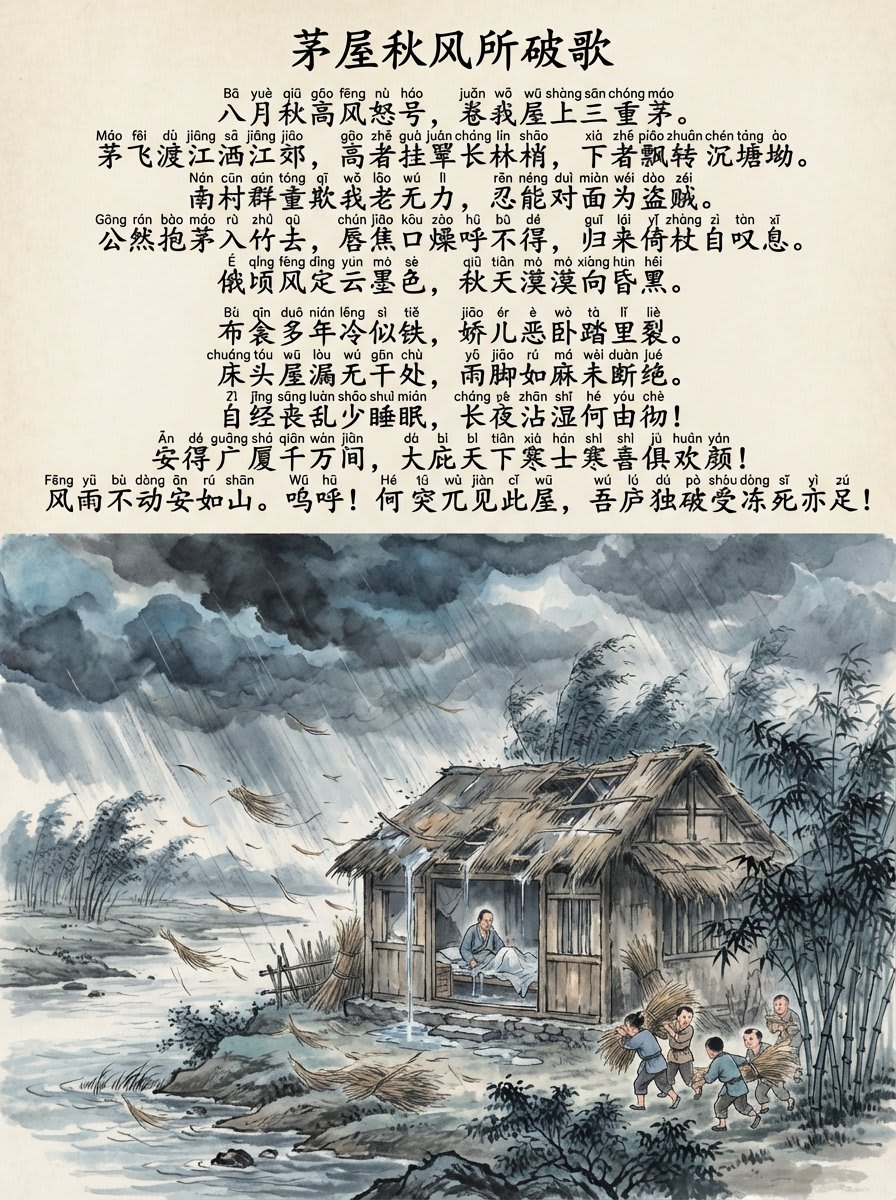 茅屋秋风所破歌
Bā yuè qiū gāo fēng nù háo juǎn wō wū shàng sān chóng máo
八月秋高风怒号，卷我屋上三重茅。
Máo fēi dù jiāng sǎ jiāng jiāo gāo zhě guà juàn cháng lín shāo xià zhě piāo zhuǎn chén táng ào
茅飞渡江洒江郊，高者挂罩长林梢，下者飘转沉塘坳。
Nán cūn qún tóng qī wǒ lǎo wú lì rěn néng duì miàn wéi dào zéi
南村群童欺我老无力，忍能对面为盗贼。
Gōng rán bào máo rù zhú qù chún jiāo kǒu zào hū bù dé guī lái yǐ zhàng zì tàn xī
公然抱茅入竹去，唇焦口燥呼不得，归来倚杖自叹息。
É qǐng fēng dìng yún mò sè qiū tiān mò mò xiàng hūn hēi
俄顷风定云墨色，秋天漠漠向昏黑。
Bù qīn duō nián lěng sì tiě jiāo ér è wò tà lǐ liè
布衾多年冷似铁，娇儿恶卧踏里裂。
chuáng tóu wū lòu wú gān chù yǔ jiǎo rú má wèi duàn jué
床头屋漏无干处，雨脚如麻未断绝。
Zì jīng sāng luàn shǎo shuì mián cháng yè zhān shī hé yóu chè
自经丧乱少睡眠，长夜沾湿何由彻！
Ān dé guǎng shà qiān wàn jiān dà bì bì tiān xià hán shì shì jù huān yán
安得广厦千万间，大庇天下寒士寒喜俱欢颜！
Fēng yǔ bù dòng ān rú shān Wū hū Hé wù jiàn cǐ wū wú lú dú pò shòu dòng sǐ yì zú
风雨不动安如山。呜呼！何突兀见此屋，吾庐独破受冻死亦足！